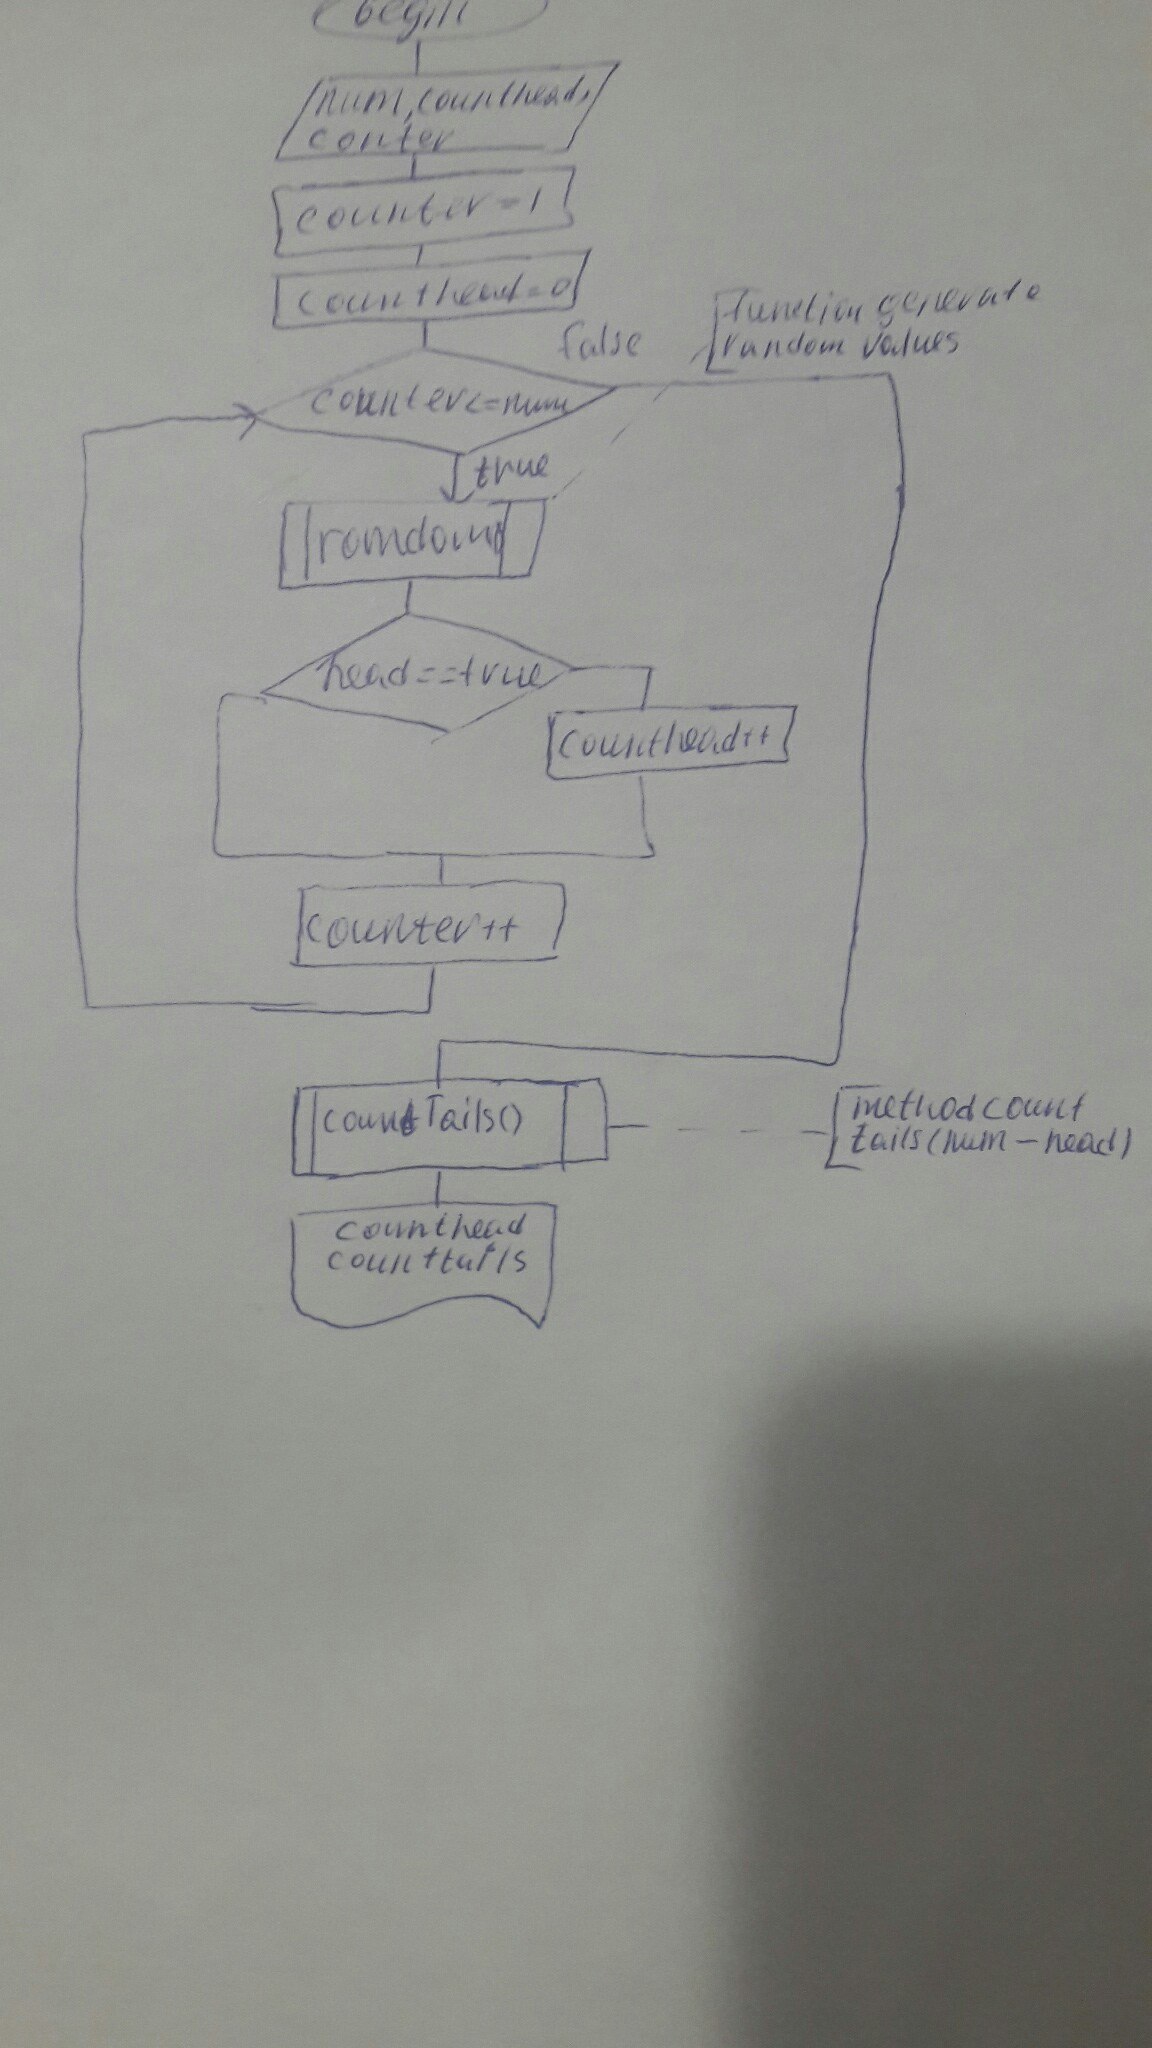 begin
num, counthead,
conter
counter=1
counthead=0
false
function generate
random values
counter<=num
true
romdom()
head==true
counthead++
counter++
countTails()
method count
tails(num-head)
counthead
counttails